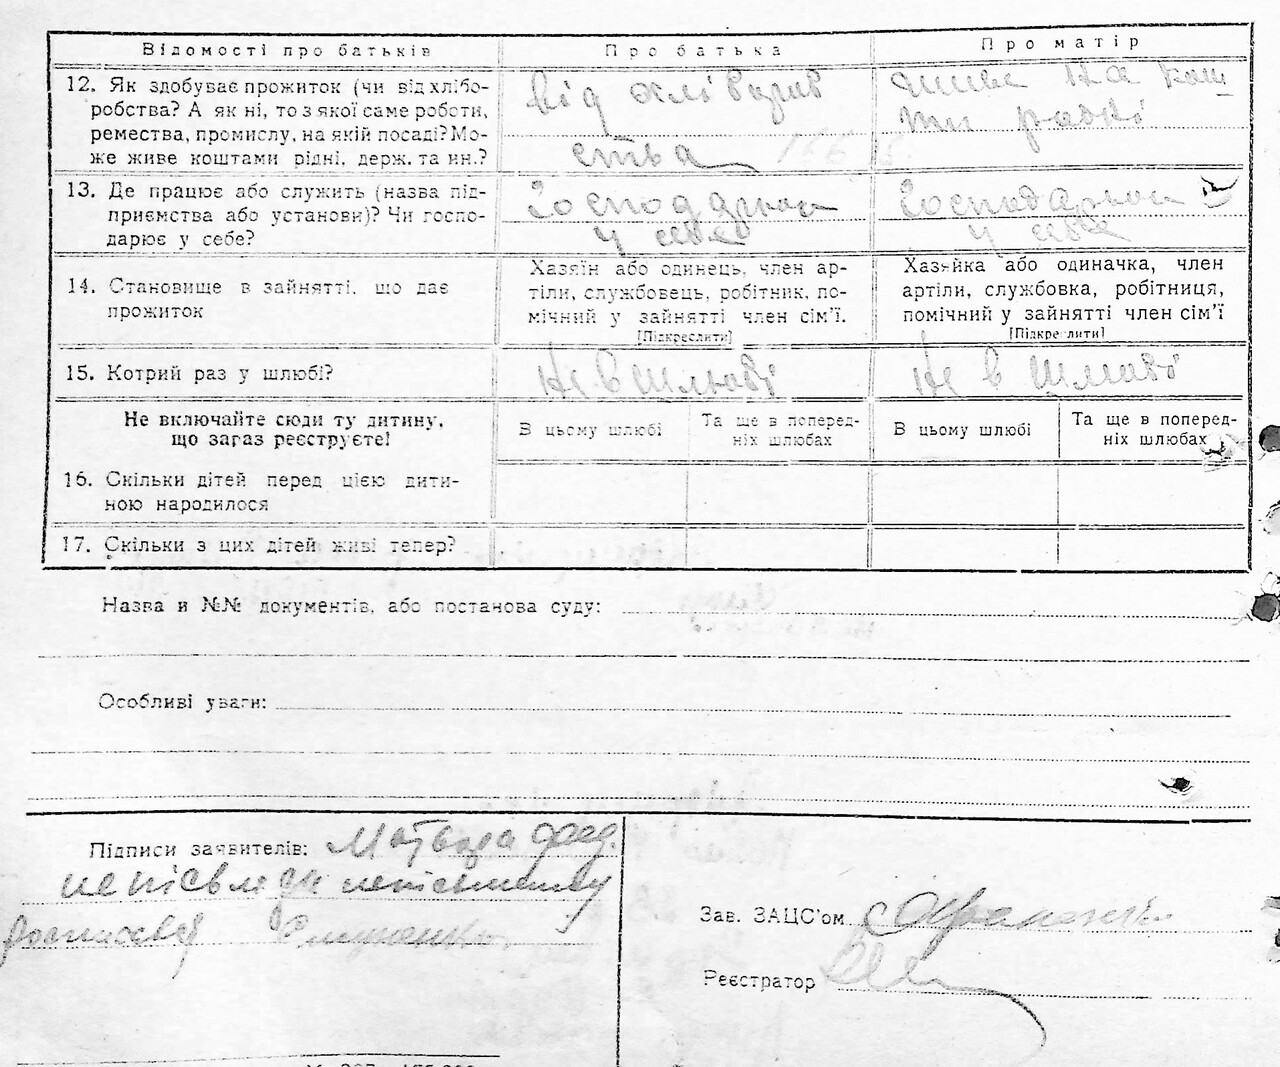 Відомості про батьків
Про батька
Про матір
12. Як здобуває прожиток (чи від хлібо-
робства? А як ні, то з якої саме роботи,
ремества, промислу, на якій посаді? Мо-
же живе коштами рідні, держ. та ин.?
від хлібороб
ства
живе на кош
ти рідні
13. Де працює або служить (назва під-
приємства або установи)? Чи госпо-
дарює у себе?
Господарює
у себе
Господарює
у себе
14. Становище в зайнятті, що дає
прожиток
Хазяїн або одинець, член ар-
тіли, службовець, робітник, по-
мічний у зайнятті член сім'ї.
[Підкреслити]
Хазяйка або одиначка, член
артіли, службовка, робітниця,
помічний у зайнятті член сім'ї
[Підкреслити]
15. Котрий раз у шлюбі?
Не в шлюбі
Не в шлюбі
Не включайте сюди ту дитину,
що зараз реєструєте!
В цьому шлюбі
Та ще в поперед-
ніх шлюбах
В цьому шлюбі
Та ще в поперед-
ніх шлюбах
16. Скільки дітей перед цією дити-
ною народилося
17. Скільки з цих дітей живі тепер?
Назва и №№ документів, або постанова суду:
Особливі уваги:
Підписи заявителів:
Зав. ЗАЦС'ом
Реєстратор